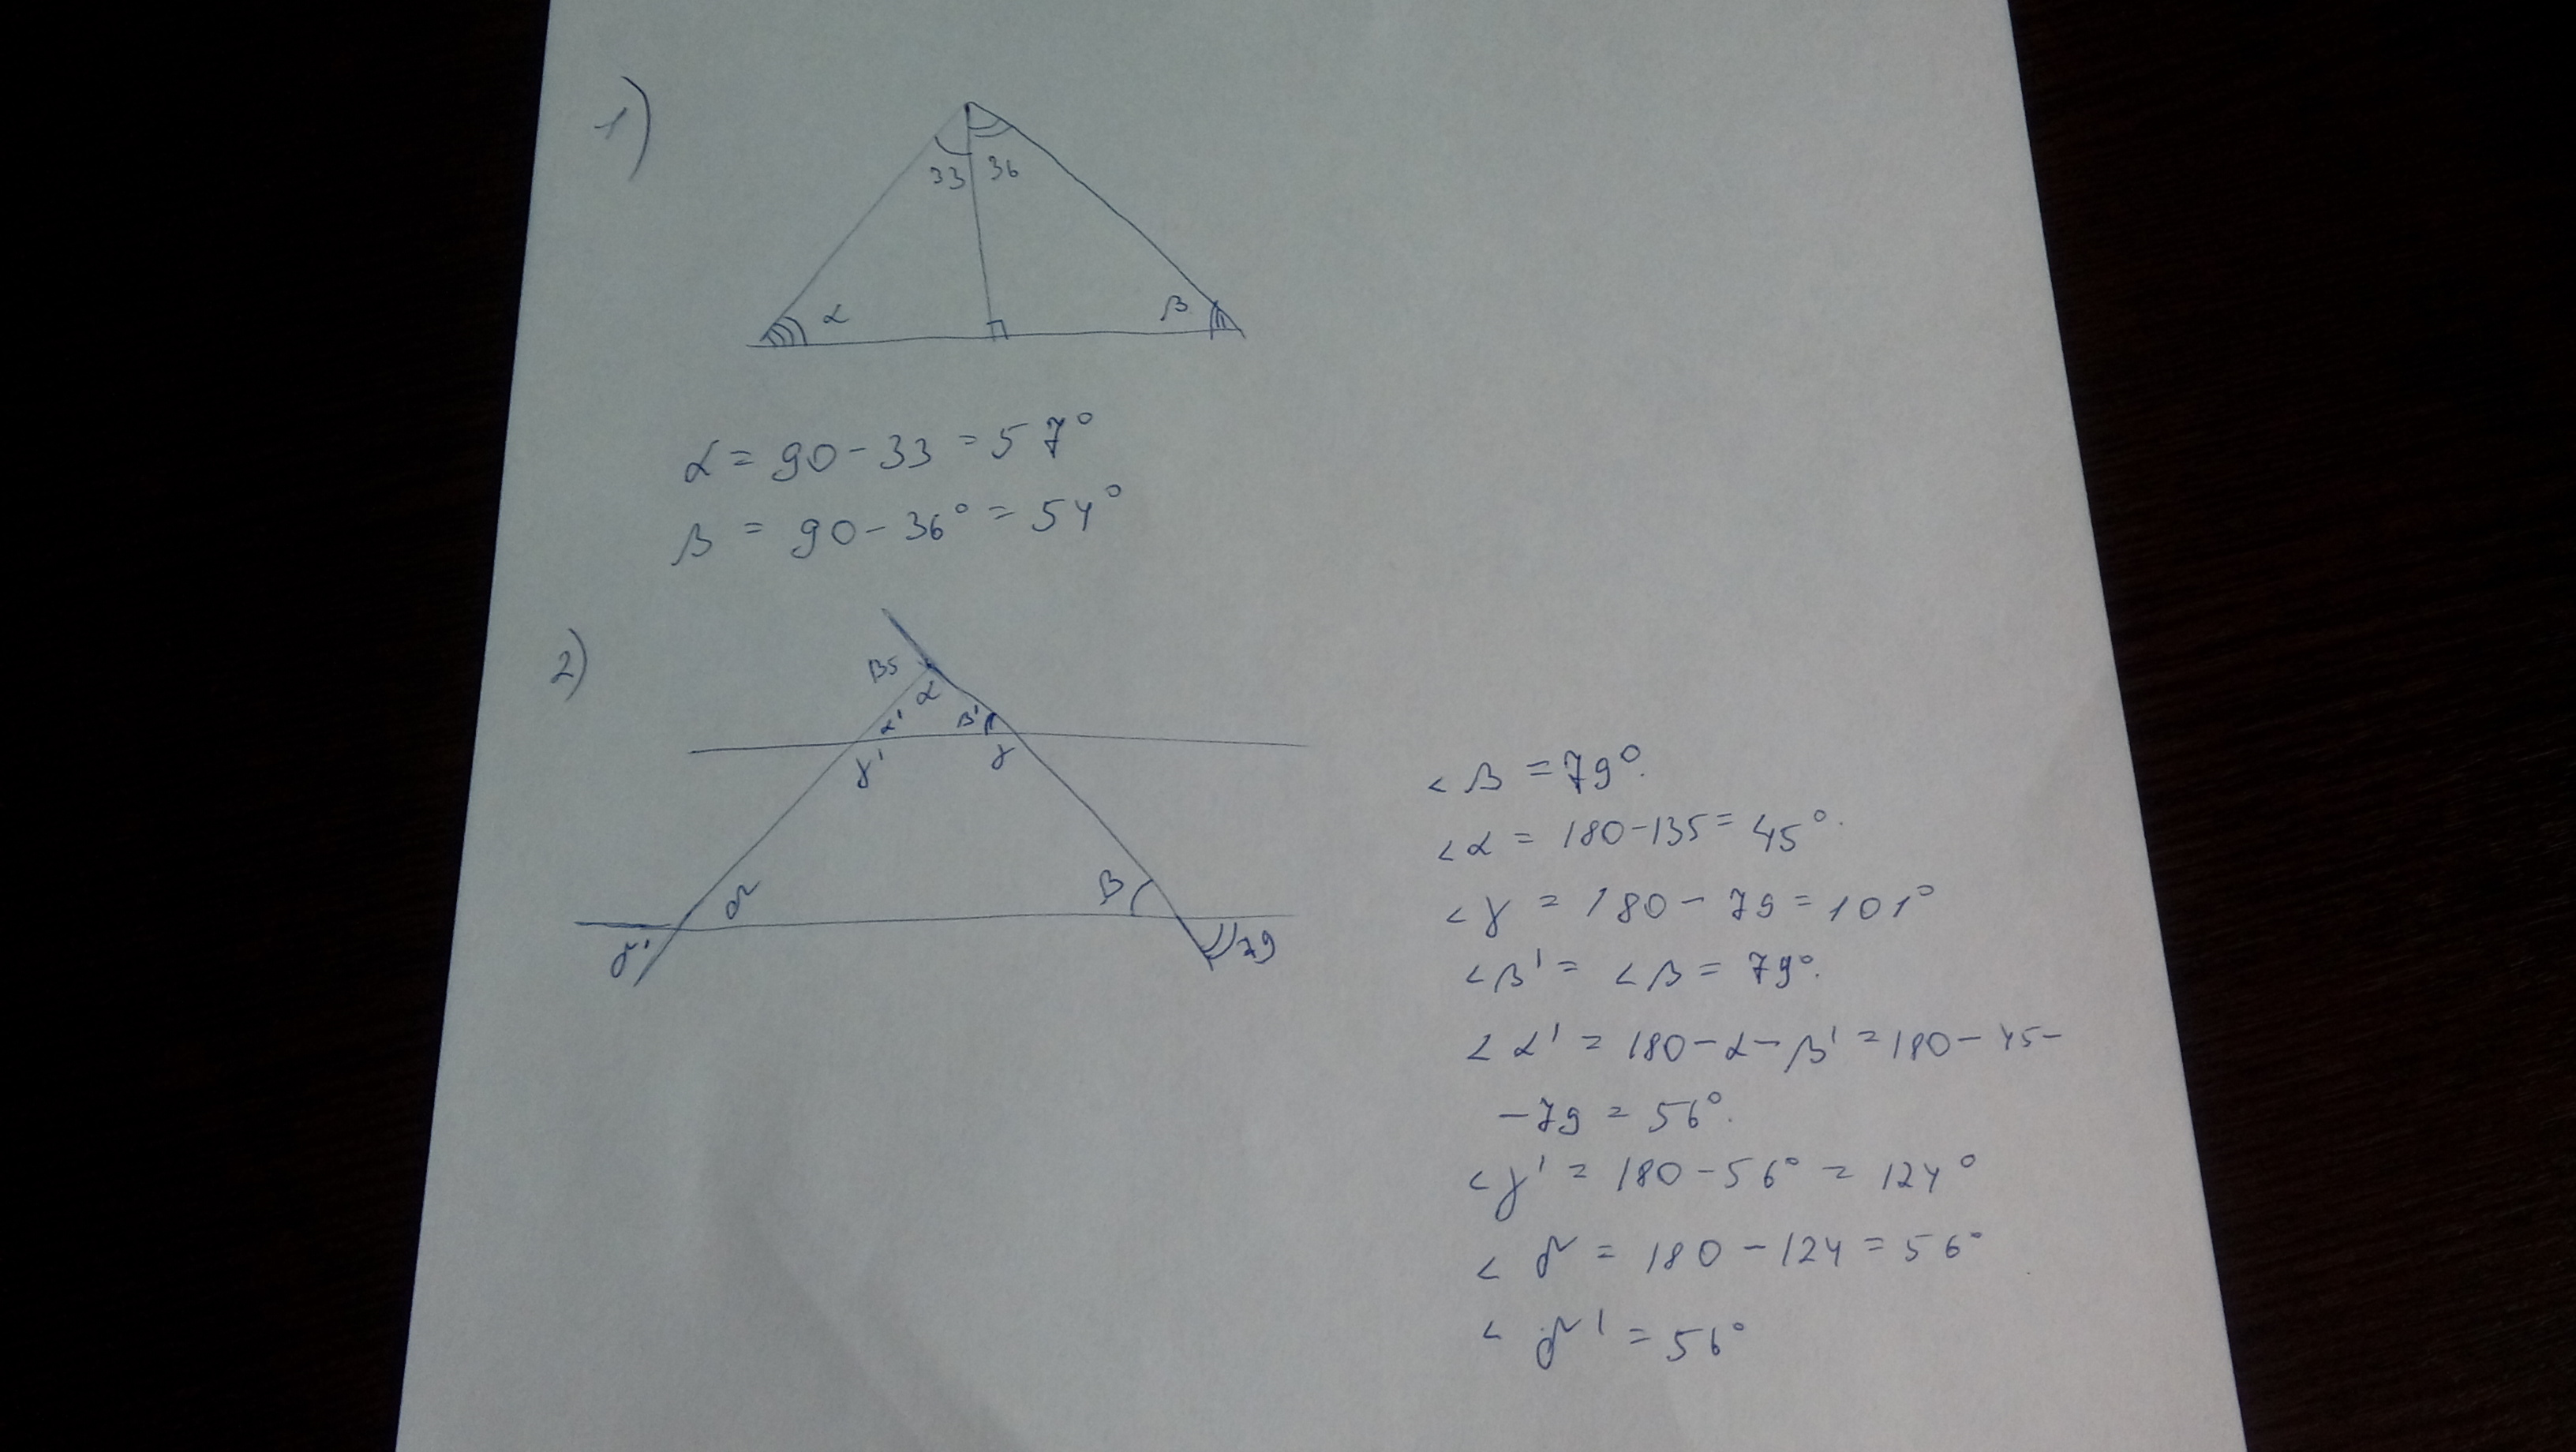 1)
33 36
α β
α = 90 - 33 = 57°
β = 90 - 36° = 54°
2)
135
α
α' β'
γ' γ
δ β
δ' 79
< β = 79°.
< α = 180 - 135 = 45°.
< γ = 180 - 79 = 101°
< β' = < β = 79°.
< α' = 180 - α - β' = 180 - 45 -
- 79 = 56°.
< γ' = 180 - 56° = 124°
< δ = 180 - 124 = 56°
< δ' = 56°